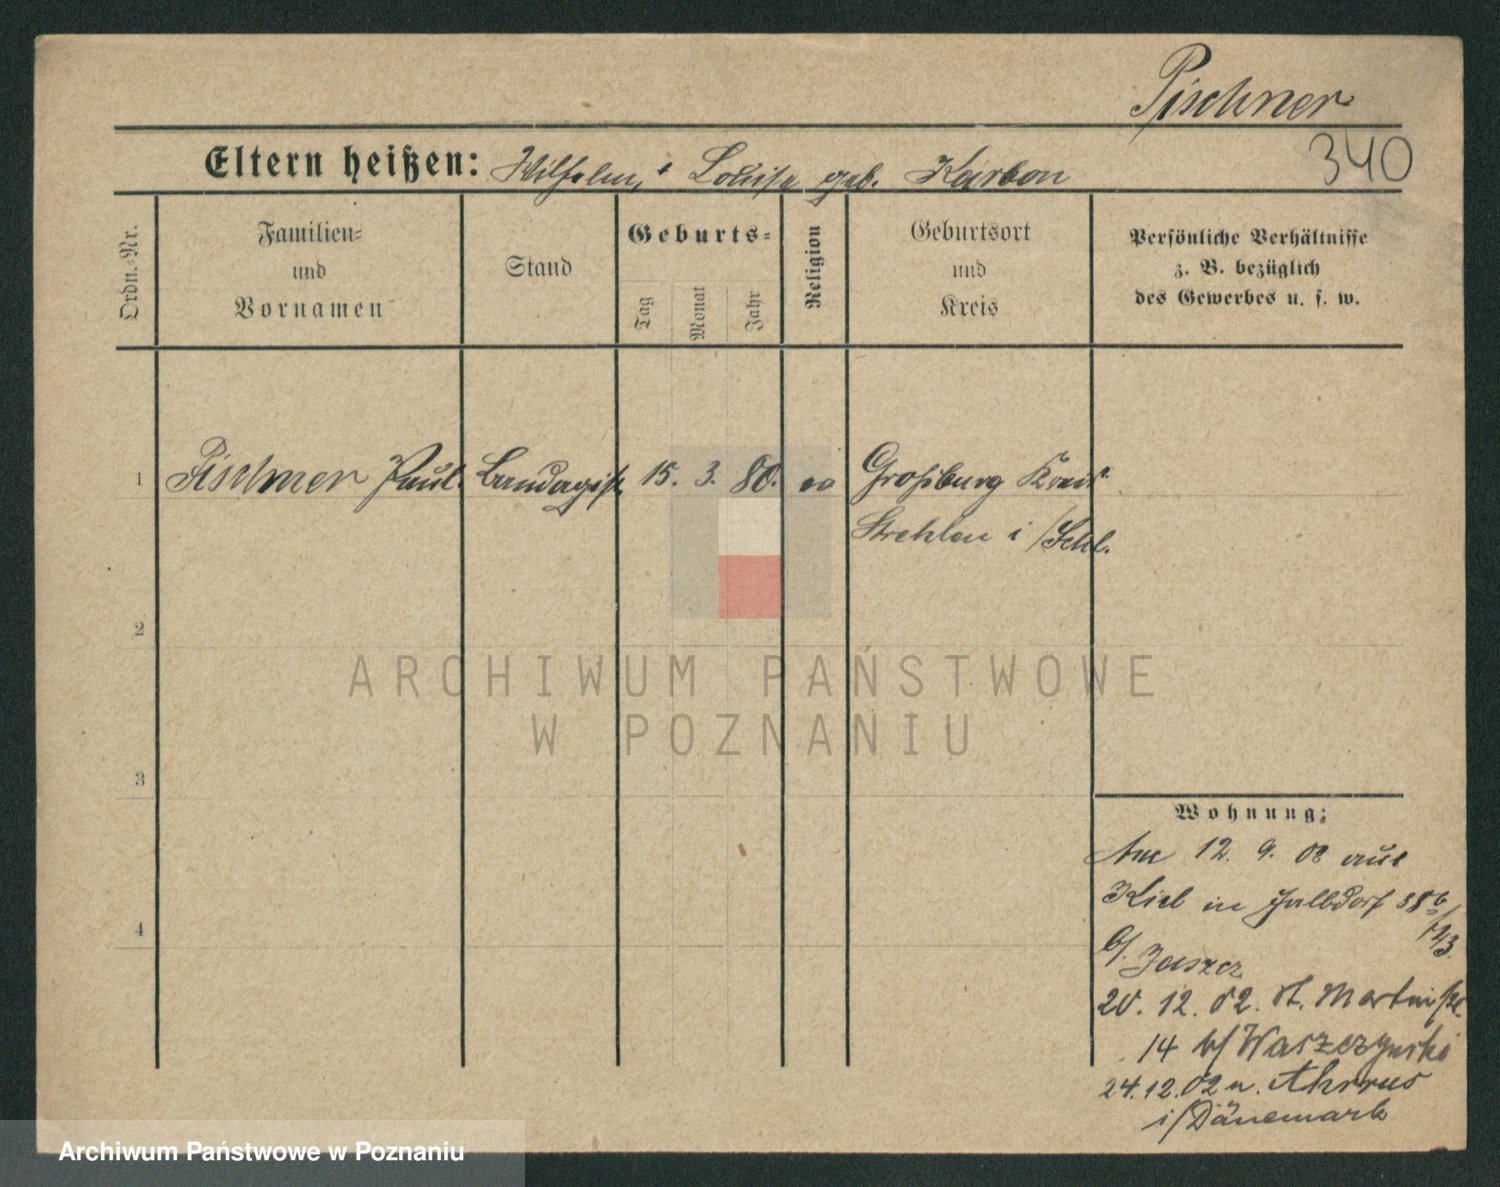 Pischner
340
Eltern heißen: Wilhelm, Louise geb. Karbon
Ordn.-Nr.
Familien-
und
Vornamen
Stand
Geburts-
Tag
Monat
Jahr
Religion
Geburtsort
und
Kreis
Persönliche Verhältnisse
z. B. bezüglich
des Gewerbes u. s. w.
1 Pischner Paul. Bandagist 15. 3. 80. Großburg Kreis
Strehlen i/Schl.
2
3
4
ARCHIWUM PAŃSTWOWE
W POZNANIU
Wohnung:
Am 12. 9. 02 aus
Kiel in
b/
20. 12. 02. St. Martinstr.
14 b/ Waszczynski
24. 12. 02 n.
i/Dänemark
Archiwum Państwowe w Poznaniu